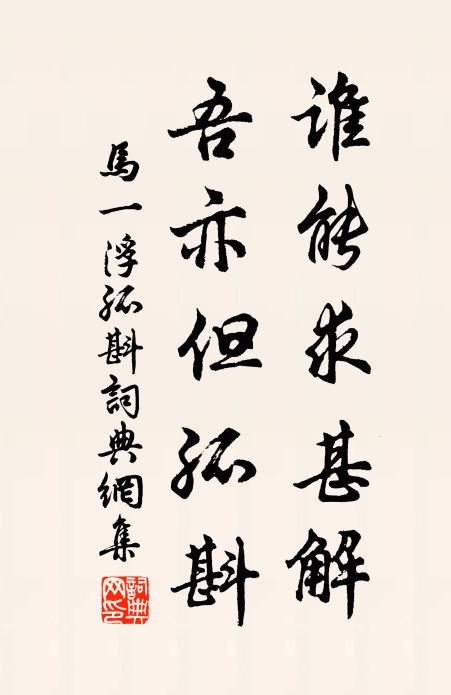 谁能求甚解
吾亦但孤斟
馬一浮孤斟詞典網集
詞典網印